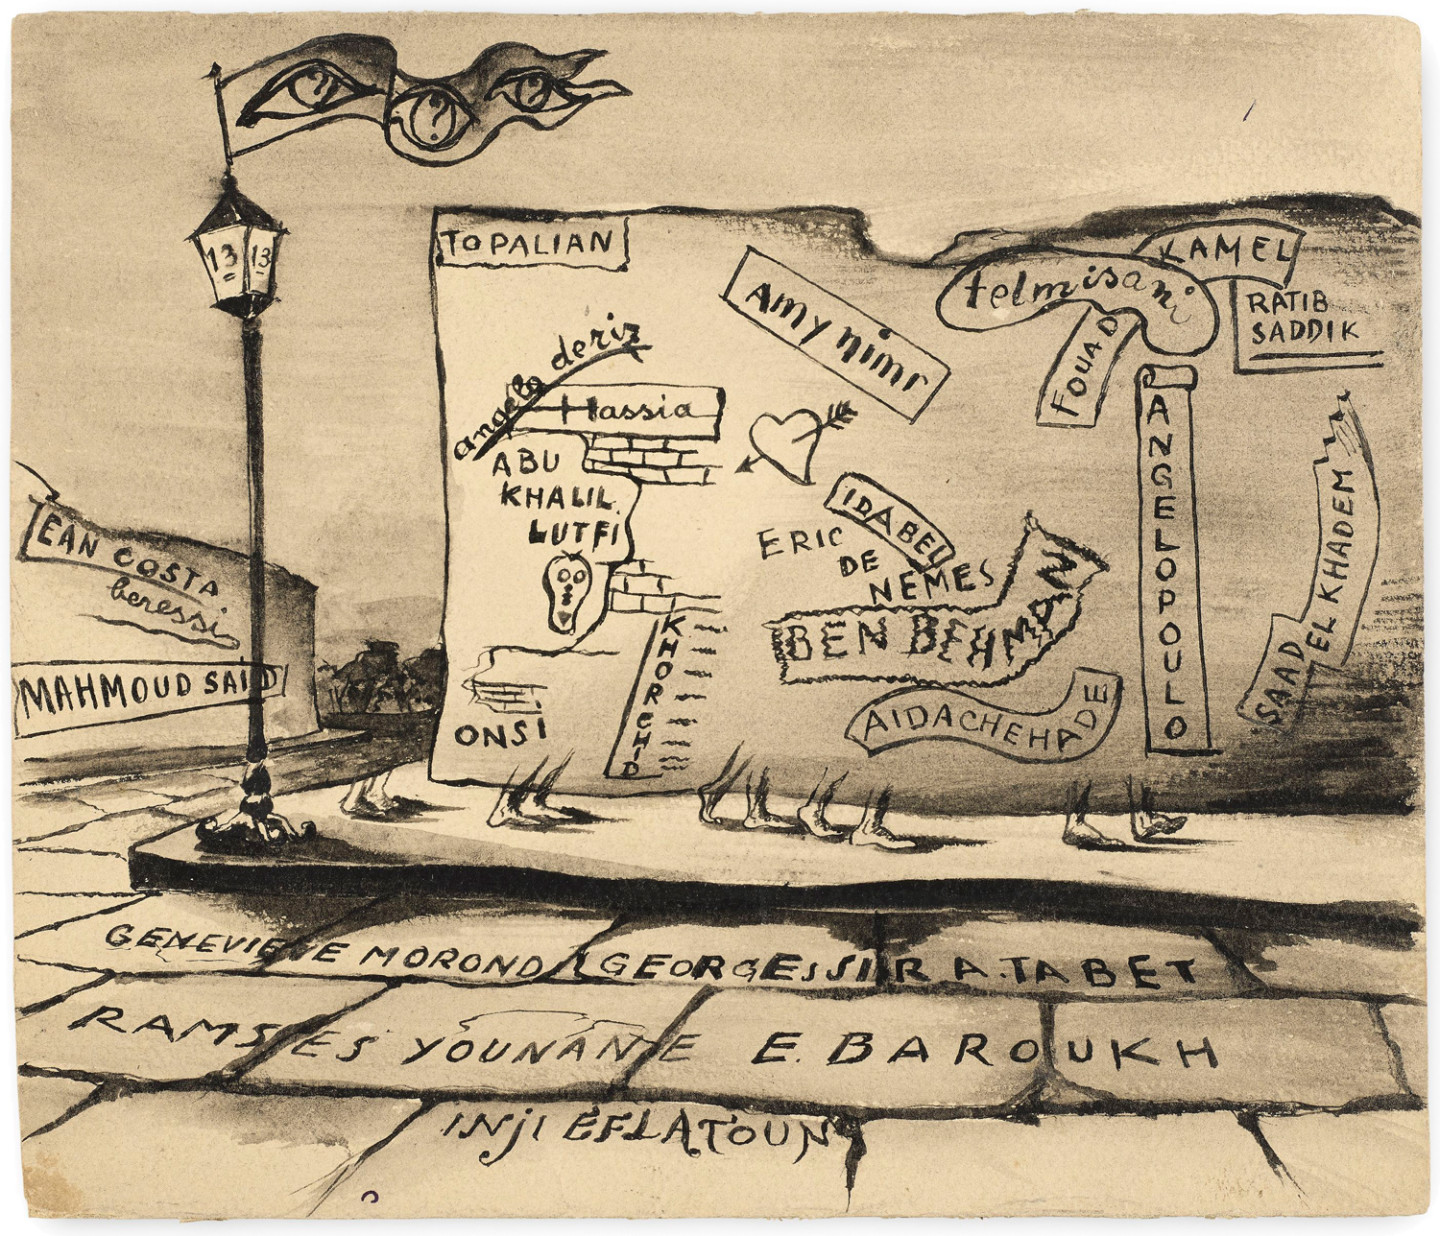 ? ? ?
13 13
TOPALIAN
Amy nimr
telmisani
KAMEL
RATIB
SADDIK
FOUAD
angelo deriz
Hassia
ABU
KHALIL
LUTFI
IDABEL
ERIC
DE
NEMES
BEN BEHMAN
ANGELOPOULO
SAAD
EL KHADEM
EAN COSTA
beressi
MAHMOUD SAID
KHORCHID
ONSI
AIDACHEHADE
GENEVIEVE MOROND GEORGES SIRA. TABET
RAMSES YOUNANE E. BAROUKH
INJI EFLATOUN